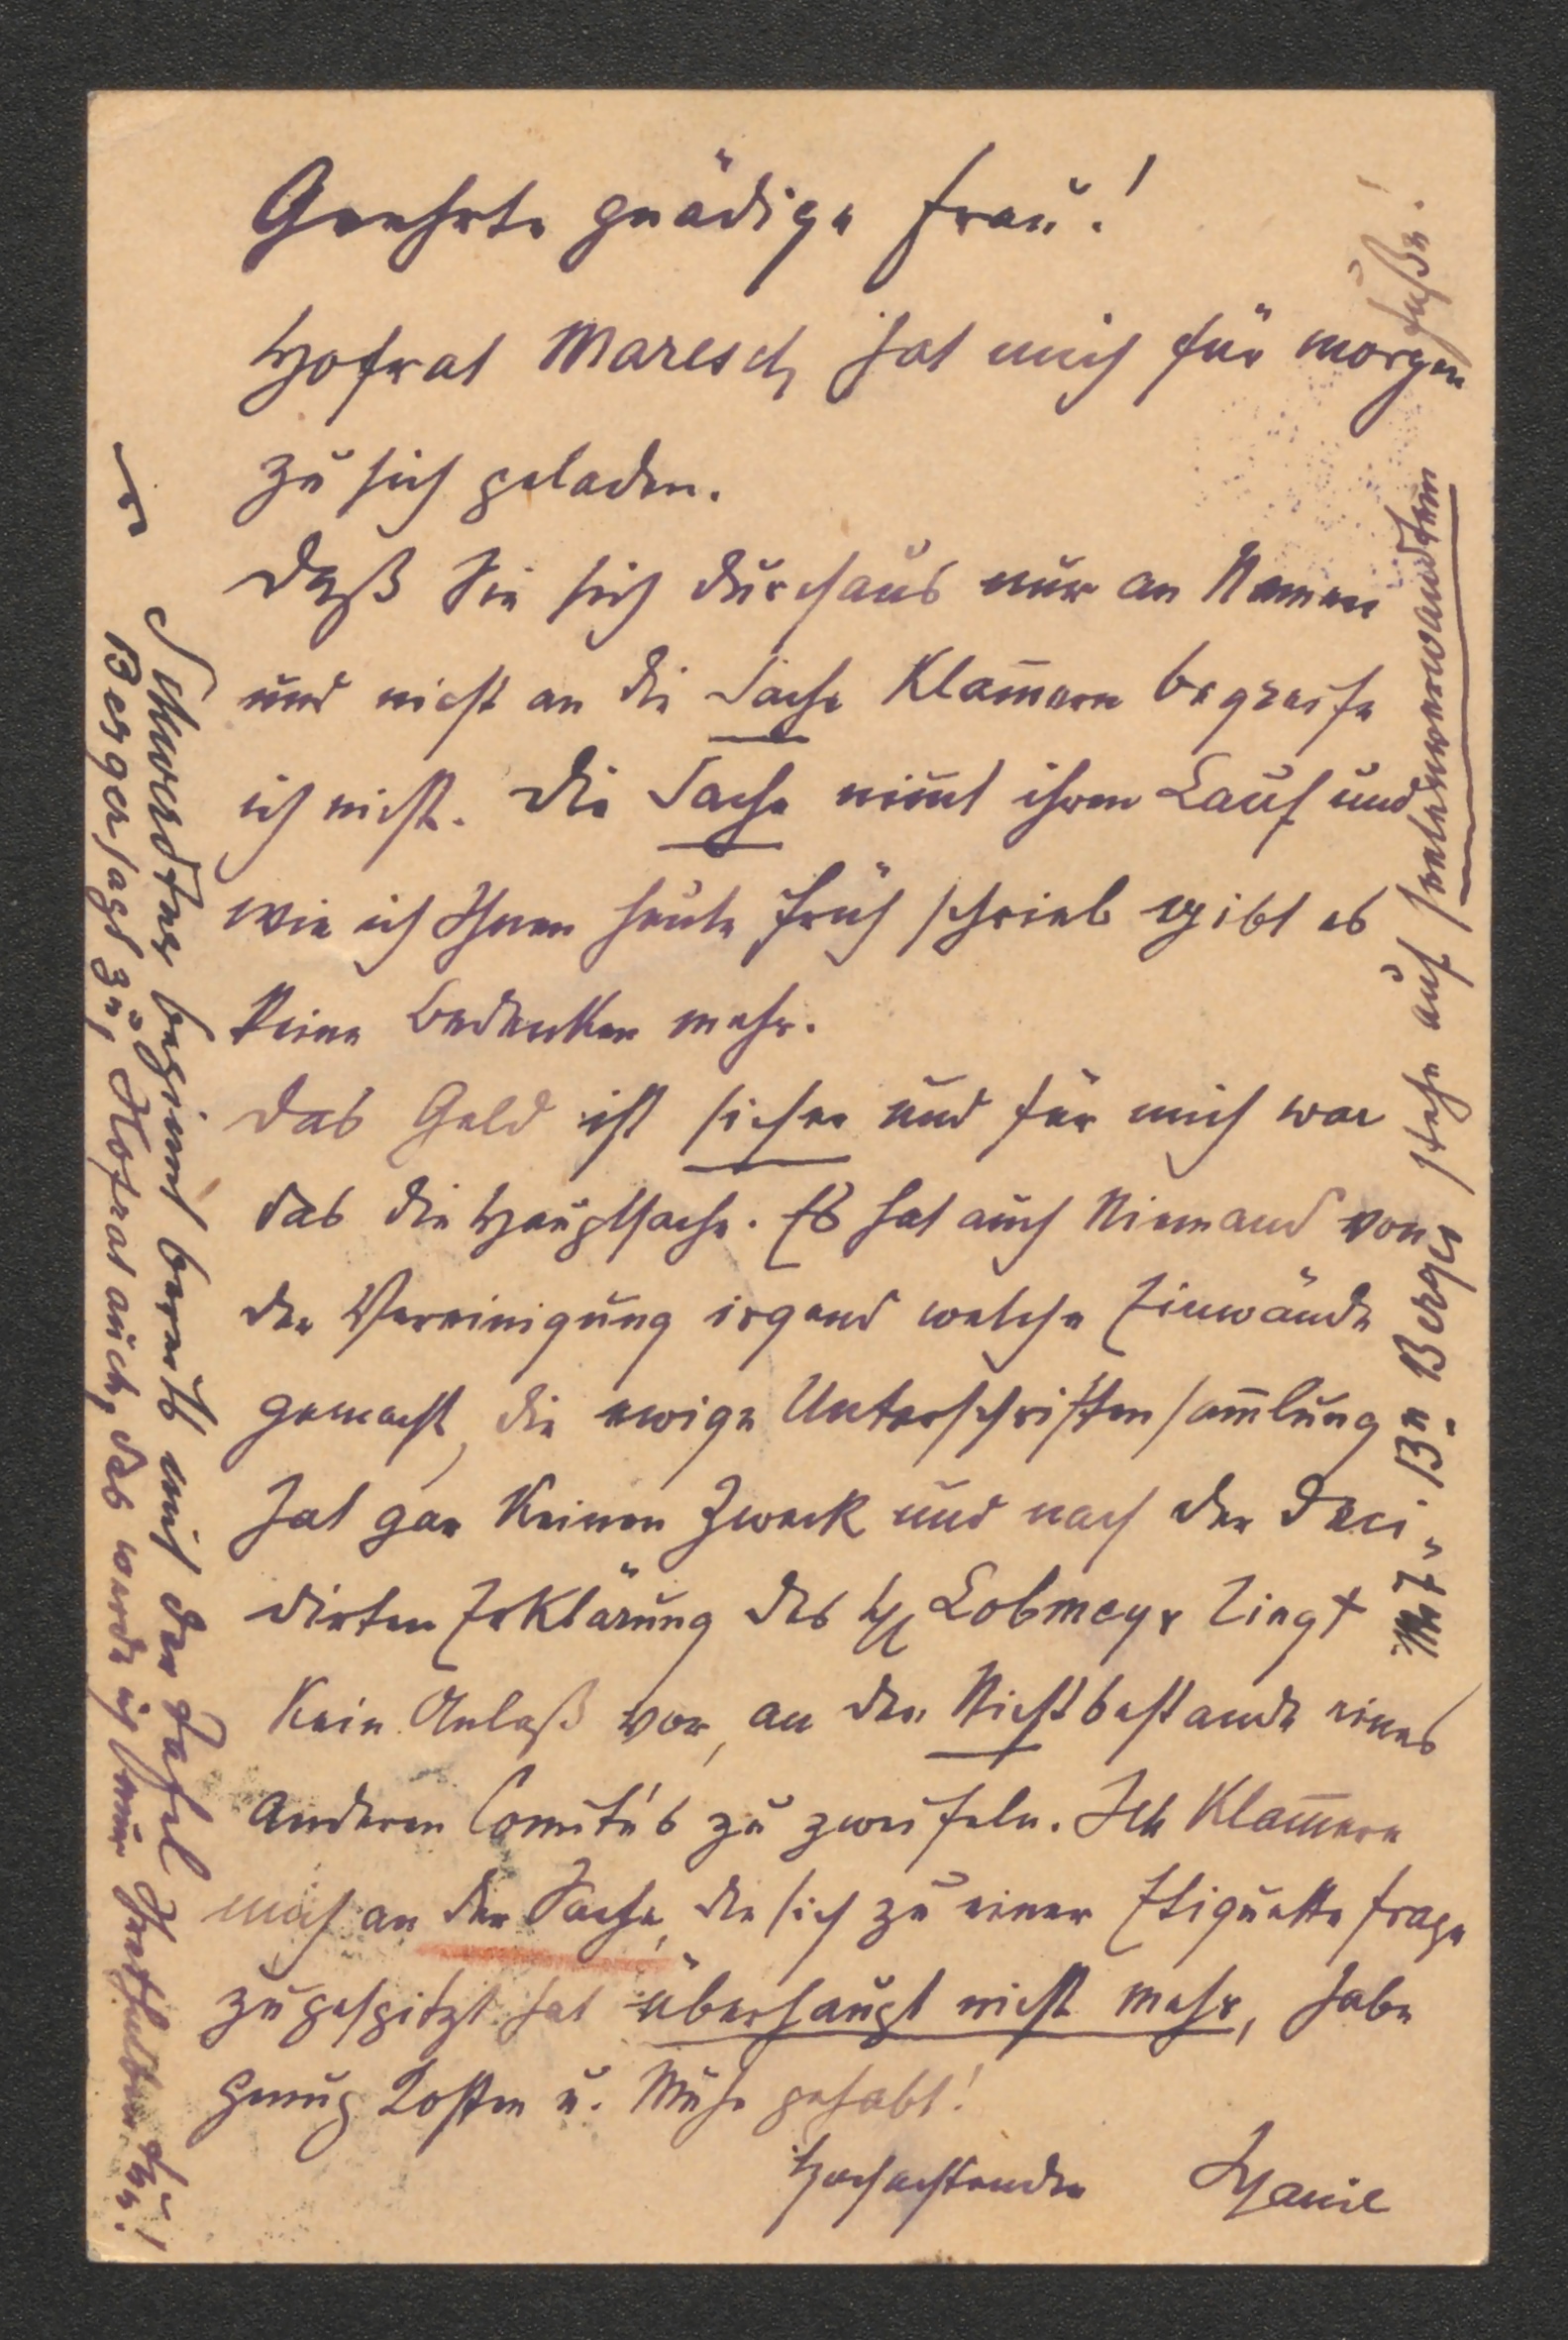 Geehrte gnädige Frau!
Hofrat Maresch hat mich für morgen
zu sich geladen.
Daß Sie sich durchaus nur an Namen
und nicht an die Sache Klam̅ern begreife
ich nicht. Die Sache nim̅t ihren Lauf und
wie ich Ihnen heute früh schrieb gibt es
keine Bedenken mehr.
Das Geld ist sicher und für mich war
das die Hauptsache. Es hat auch Niemand von
der Vereinigung irgend welche Einwände
gemacht, die ewige Unterschriftensam̅lung
hat gar Keinen Zweck und nach der deci-
dirten Erklärung des H Lobmeyr liegt
Kein Anlaß vor, an den Nichtbestande eines
anderen Comités zu zweifeln. Ich Klam̅ere
mich an der Sache, die sich zu einer Etiquette frage
zugespitzt hat überhaupt nicht mehr, habe
genug Kosten u. Mühe gehabt!
Hochachtender Hanie
Mit Bn Berger stehe auf seelenverwandtem
Fuße!
Schwerdtner begin̅t bereits mit der Tafel
Berger sagt zu, Hofrat auch, das werde ich